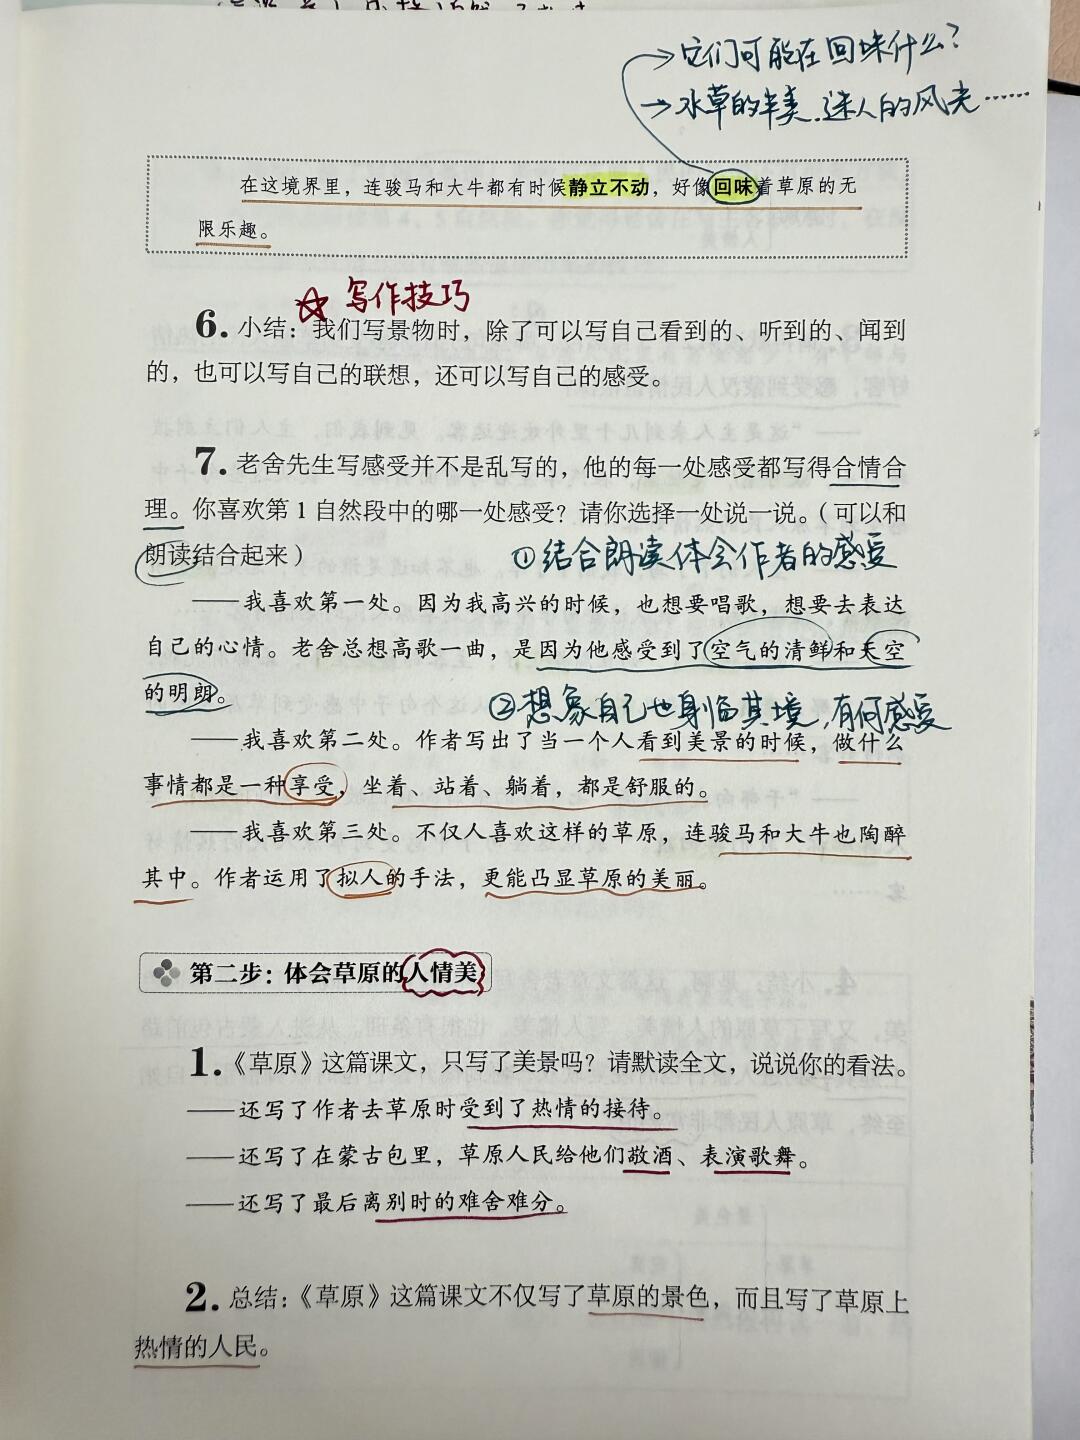 →它们可能在回味什么？
→水草的丰美.迷人的风光……
在这境界里，连骏马和大牛都有时候静立不动，好像回味着草原的无
限乐趣。
☆写作技巧
6.小结：我们写景物时，除了可以写自己看到的、听到的、闻到
的，也可以写自己的联想，还可以写自己的感受。
7.老舍先生写感受并不是乱写的，他的每一处感受都写得合情合
理。你喜欢第1自然段中的哪一处感受？请你选择一处说一说。（可以和
朗读结合起来）
①结合朗读体会作者的感受
——我喜欢第一处。因为我高兴的时候，也想要唱歌，想要去表达
自己的心情。老舍总想高歌一曲，是因为他感受到了空气的清鲜和天空
的明朗。
②想象自己也身临其境，有何感受
——我喜欢第二处。作者写出了当一个人看到美景的时候，做什么
事情都是一种享受，坐着、站着、躺着，都是舒服的。
——我喜欢第三处。不仅人喜欢这样的草原，连骏马和大牛也陶醉
其中。作者运用了拟人的手法，更能凸显草原的美丽。
第二步：体会草原的人情美
1.《草原》这篇课文，只写了美景吗？请默读全文，说说你的看法。
——还写了作者去草原时受到了热情的接待。
——还写了在蒙古包里，草原人民给他们敬酒、表演歌舞。
——还写了最后离别时的难舍难分。
2.总结：《草原》这篇课文不仅写了草原的景色，而且写了草原上
热情的人民。